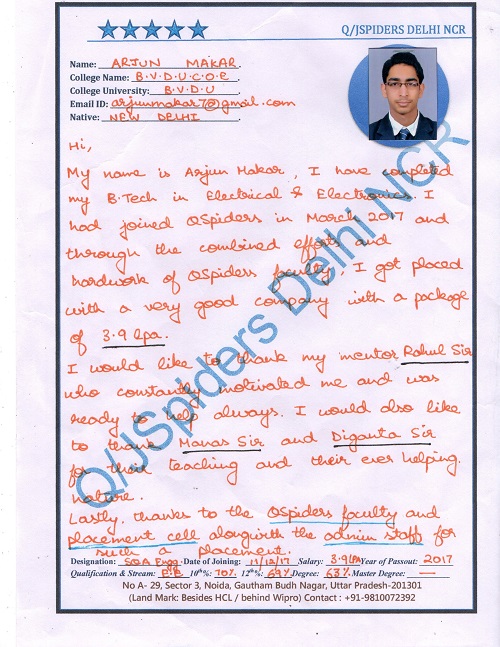 Q/JSPIDERS DELHI NCR
Name: ARJUN MAKAR
College Name: B.V.D.U.C.O.E
College University: B.V.D.U
Email ID: arjunmakar7@gmail.com
Native: NEW DELHI
Hi,
My name is Arjun Makar, I have completed
my B.Tech in Electrical & Electronics. I
had joined QSpiders in March 2017 and
through the combined efforts and
hardwork of QSpiders faculty, I got placed
with a very good company with a package
of 3.9 lpa.
I would like to thank my mentor Rahul Sir
who constantly motivated me and was
ready to help always. I would also like
to thank Manas Sir and Diganta Sir
for their teaching and their ever helping
nature.
Lastly, thanks to the QSpiders faculty and
placement cell alongwith the admin staff for
such a placement.
Designation: SQA Engg. Date of Joining: 11/12/17 Salary: 3.9lpa Year of Passout: 2017
Qualification & Stream: E.E 10th%: 70% 12th%: 69% Degree: 63% Master Degree: —
No A- 29, Sector 3, Noida, Gautham Budh Nagar, Uttar Pradesh-201301
(Land Mark: Besides HCL / behind Wipro) Contact : +91-9810072392
Q/JSpiders Delhi NCR